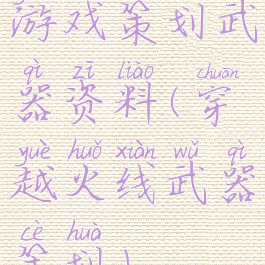 游戏策划武
qì zī liào chuān
器资料(穿
yuè huǒ xiàn wǔ qì
越火线武器
cè huà
策划)